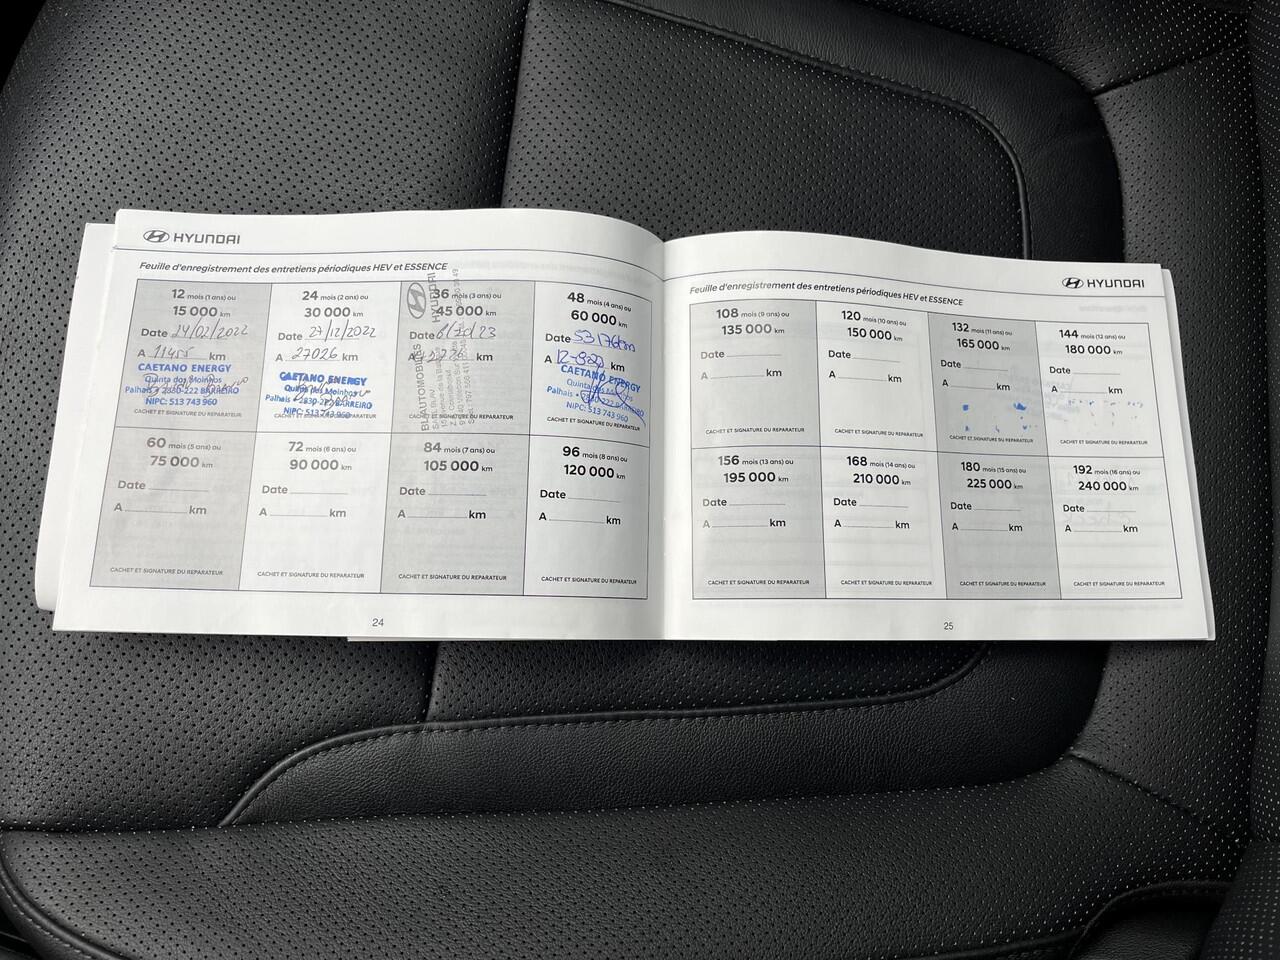 HYUNDAI
Feuille d'enregistrement des entretiens périodiques HEV et ESSENCE
12 mois (1 ans) ou
15 000 km
Date 24/02/2022
A 11455 km
CAETANO ENERGY
Quinta dos Moinhos
Palhais • 2830-222 BARREIRO
NIPC: 513 743 960
CACHET ET SIGNATURE DU REPARATEUR
24 mois (2 ans) ou
30 000 km
Date 27/12/2022
A 27026 km
CAETANO ENERGY
Quinta dos Moinhos
Palhais • 2830-222 BARREIRO
NIPC: 513 743 960
CACHET ET SIGNATURE DU REPARATEUR
36 mois (3 ans) ou
45 000 km
Date
A km
HYUNDAI
CACHET ET SIGNATURE DU REPARATEUR
48 mois (4 ans) ou
60 000 km
Date 53176km
A km
CAETANO ENERGY
Quinta dos Moinhos
Palhais • 2830-222 BARREIRO
NIPC: 513 743 960
CACHET ET SIGNATURE DU REPARATEUR
60 mois (5 ans) ou
75 000 km
Date
A km
CACHET ET SIGNATURE DU REPARATEUR
72 mois (6 ans) ou
90 000 km
Date
A km
CACHET ET SIGNATURE DU REPARATEUR
84 mois (7 ans) ou
105 000 km
Date
A km
CACHET ET SIGNATURE DU REPARATEUR
96 mois (8 ans) ou
120 000 km
Date
A km
CACHET ET SIGNATURE DU REPARATEUR
24
HYUNDAI
Feuille d'enregistrement des entretiens périodiques HEV et ESSENCE
108 mois (9 ans) ou
135 000 km
Date
A km
CACHET ET SIGNATURE DU REPARATEUR
120 mois (10 ans) ou
150 000 km
Date
A km
CACHET ET SIGNATURE DU REPARATEUR
132 mois (11 ans) ou
165 000 km
Date
A km
CACHET ET SIGNATURE DU REPARATEUR
144 mois (12 ans) ou
180 000 km
Date
A km
CACHET ET SIGNATURE DU REPARATEUR
156 mois (13 ans) ou
195 000 km
Date
A km
CACHET ET SIGNATURE DU REPARATEUR
168 mois (14 ans) ou
210 000 km
Date
A km
CACHET ET SIGNATURE DU REPARATEUR
180 mois (15 ans) ou
225 000 km
Date
A km
CACHET ET SIGNATURE DU REPARATEUR
192 mois (16 ans) ou
240 000 km
Date
A km
CACHET ET SIGNATURE DU REPARATEUR
25